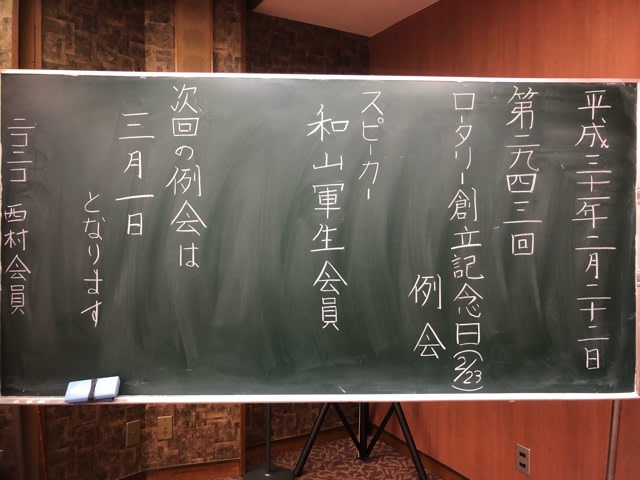 平成三十一年二月二十二日
第二九四三回
ロータリー創立記念日(2/23)
例会
スピーカー
和山軍生会員
次回の例会は
三月一日
となります
ニコニコ 西村会員